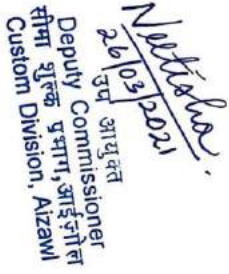 Neetisha
26/03/2021
उप आयुक्त
Deputy Commissioner
सीमा शुल्क प्रभाग, आईजोल
Custom Division, Aizawl